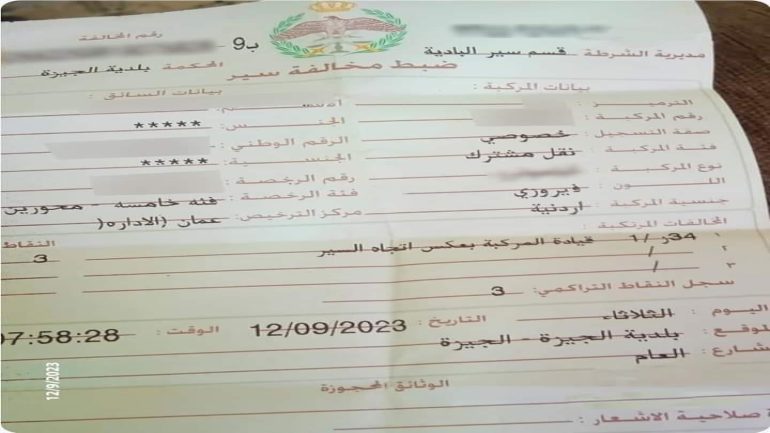 رقم المخالفة
ب9
مديرية الشرطة : قسم سير البادية
المحكمة : بلدية الجيزة
ضبط مخالفة سير
بيانات المركبة :
بيانات السائق :
الترميز :
رقم المركبة :
الجنس : *****
صفة التسجيل : خصوصي
الرقم الوطني :
فئة المركبة : نقل مشترك
الجنسية : *****
نوع المركبة :
رقم الرخصة :
اللون : فيروزي
فئة الرخصة : فئة خامسه - محورين
جنسية المركبة : اردنية
مركز الترخيص : عمان (الاداره(
المخالفات المرتكبة :
النقاط
١ 34ز /1 قيادة المركبة بعكس اتجاه السير 3
٢ /
٣ /
سجل النقاط التراكمي : 3
اليوم : الثلاثاء التاريخ : 12/09/2023 الوقت : 07:58:28
لموقع : بلدية الجيزة - الجيزة
شارع : العام
الوثائق المحجوزة
ة صلاحية الاشعار :
12/9/2023